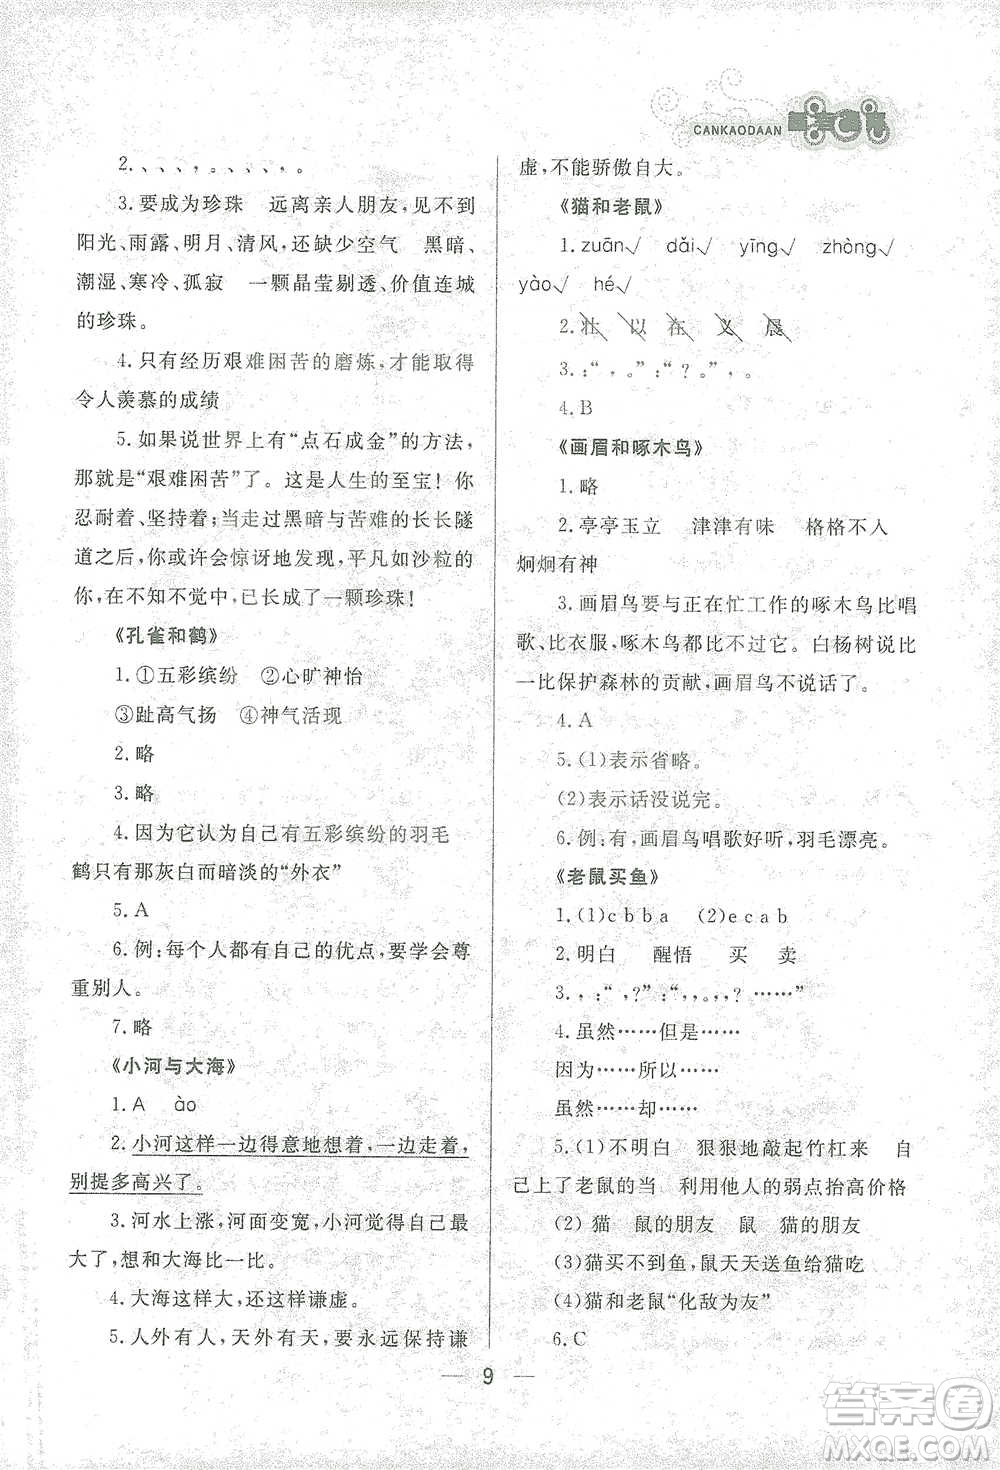 CANKAODAAN
2.、、、,、、、。
3.要成为珍珠　远离亲人朋友,见不到
阳光、雨露、明月、清风,还缺少空气　黑暗、
潮湿、寒冷、孤寂　一颗晶莹剔透、价值连城
的珍珠。
4.只有经历艰难困苦的磨炼,才能取得
令人羡慕的成绩
5.如果说世界上有“点石成金”的方法,
那就是“艰难困苦”了。这是人生的至宝!你
忍耐着、坚持着;当走过黑暗与苦难的长长隧
道之后,你或许会惊讶地发现,平凡如沙粒的
你,在不知不觉中,已长成了一颗珍珠!
《孔雀和鹤》
1.①五彩缤纷　②心旷神怡
③趾高气扬　④神气活现
2.略
3.略
4.因为它认为自己有五彩缤纷的羽毛
鹤只有那灰白而暗淡的“外衣”
5.A
6.例:每个人都有自己的优点,要学会尊
重别人。
7.略
《小河与大海》
1.A　ào
2.小河这样一边得意地想着,一边走着,
别提多高兴了。
3.河水上涨,河面变宽,小河觉得自己最
大了,想和大海比一比。
4.大海这样大,还这样谦虚。
5.人外有人,天外有天,要永远保持谦
虚,不能骄傲自大。
《猫和老鼠》
1.zuān√　dǎi√　yīng√　zhòng√
yào√　hé√
2.壮　以　在　义　晨
3.:“,。”:“?。”,。
4.B
《画眉和啄木鸟》
1.略
2.亭亭玉立　津津有味　格格不入
炯炯有神
3.画眉鸟要与正在忙工作的啄木鸟比唱
歌、比衣服,啄木鸟都比不过它。白杨树说比
一比保护森林的贡献,画眉鸟不说话了。
4.A
5.(1)表示省略。
(2)表示话没说完。
6.例:有,画眉鸟唱歌好听,羽毛漂亮。
《老鼠买鱼》
1.(1)c b b a　(2)e c a b
2.明白　醒悟　买　卖
3.,:“,?”:“,,。,? ……”
4.虽然……但是……
因为……所以……
虽然……却……
5.(1)不明白　狠狠地敲起竹杠来　自
己上了老鼠的当　利用他人的弱点抬高价格
(2)猫　鼠的朋友　鼠　猫的朋友
(3)猫买不到鱼,鼠天天送鱼给猫吃
(4)猫和老鼠“化敌为友”
6.C
9
答案圈
MXQE.COM